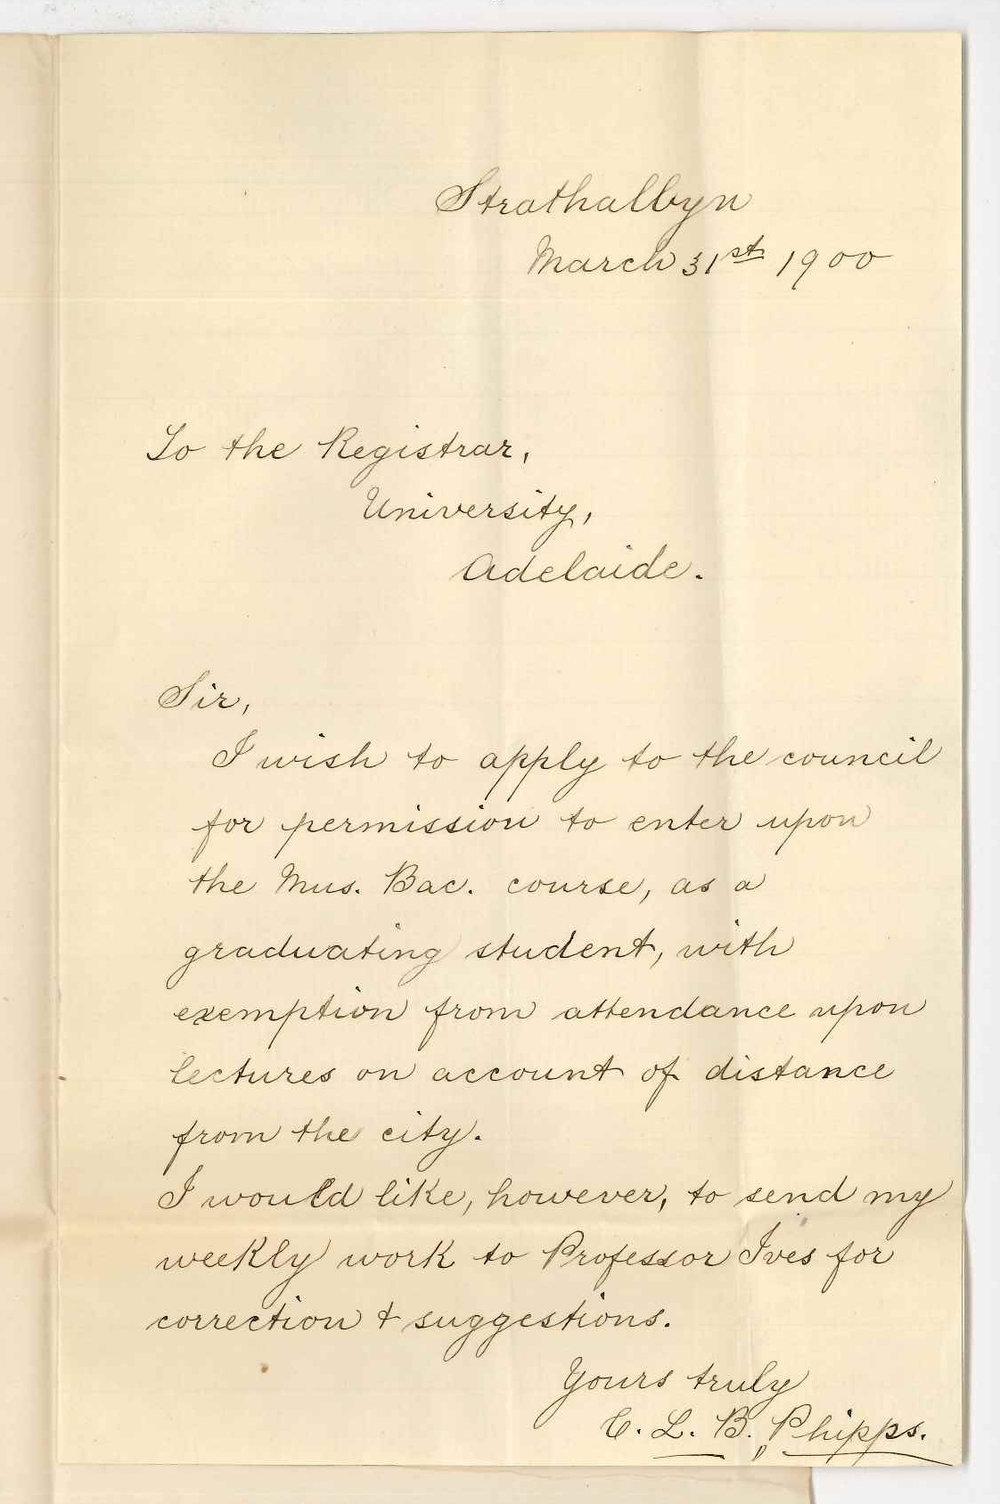 Strathalbyn
March 31st 1900
To the Registrar,
University,
Adelaide.
Sir,
I wish to apply to the council
for permission to enter upon
the Mus. Bac. course, as a
graduating student, with
exemption from attendance upon
lectures on account of distance
from the city.
I would like, however, to send my
weekly work to Professor Ives for
correction & suggestions.
Yours truly
C. L. B. Phipps.